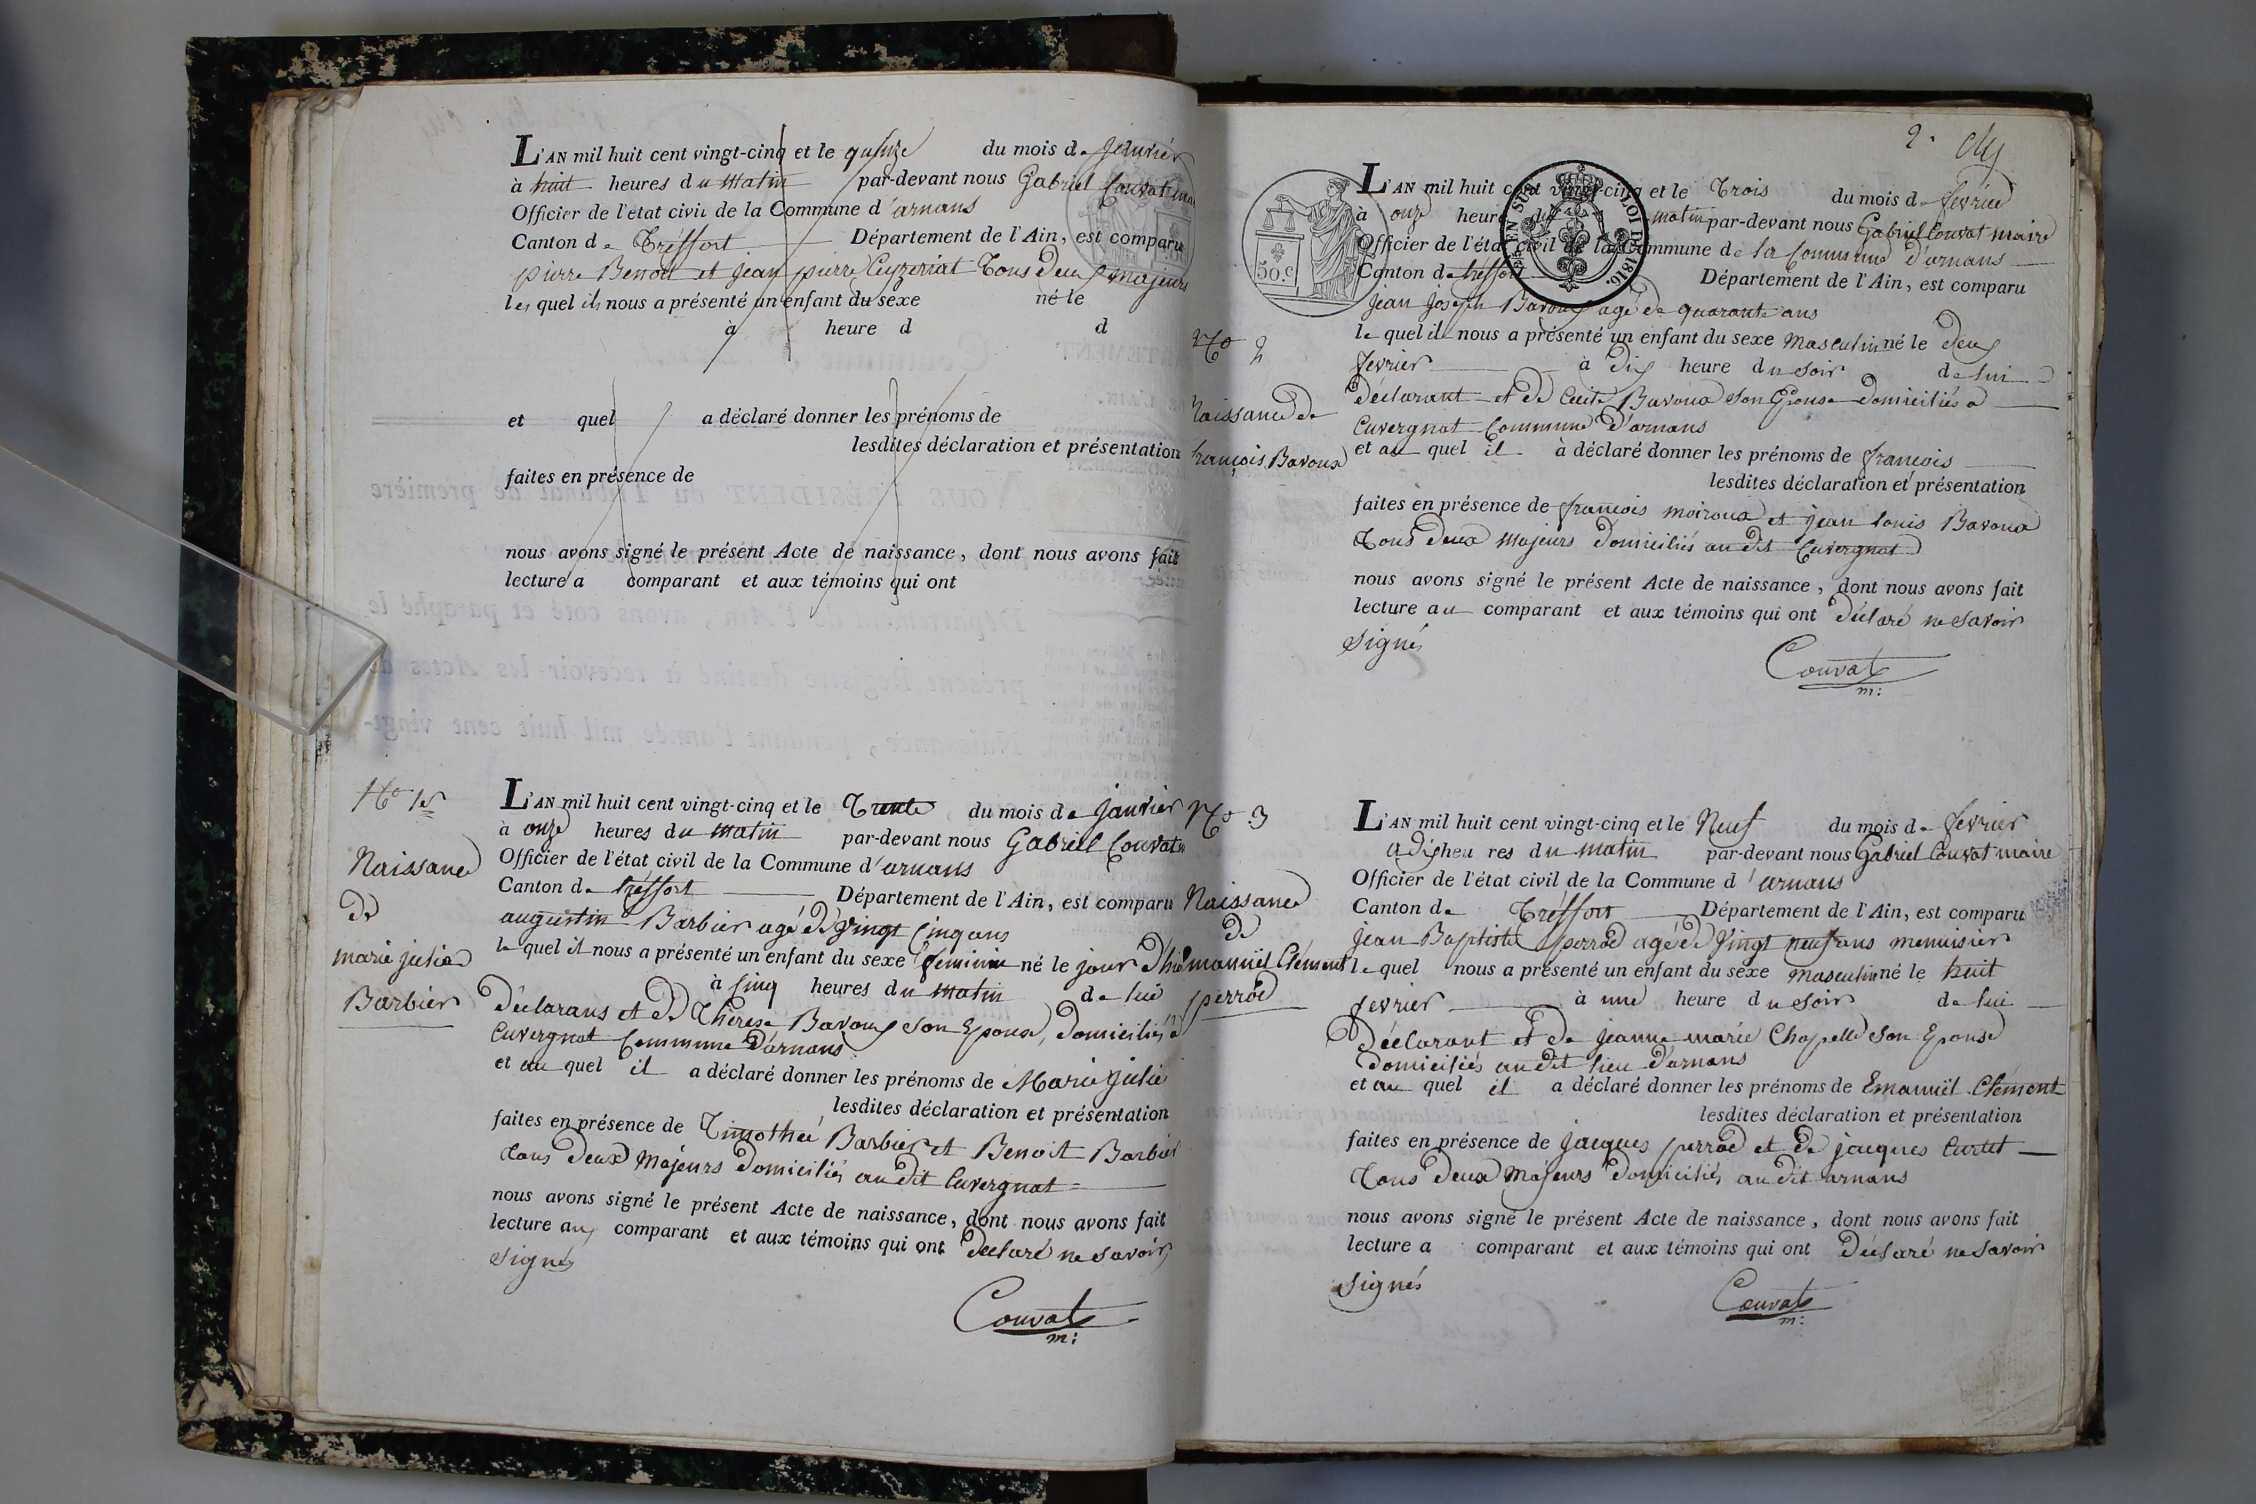 L'AN mil huit cent vingt-cinq et le quinze du mois de janvier
à huit heures du matin par-devant nous Gabriel Couvat
Officier de l'état civil de la Commune d'arnans
Canton de Tréffort Département de l'Ain, est comparu
pierre Benoit et jean pierre Ceyzeriat Tous deux majeurs
les quel ils nous a présenté un enfant du sexe né le
à heure d d
et quel a déclaré donner les prénoms de
lesdites déclaration et présentation
faites en présence de
nous avons signé le présent Acte de naissance, dont nous avons fait
lecture a comparant et aux témoins qui ont
No 1er
Naissance
de
marie julie
Barbier
L'AN mil huit cent vingt-cinq et le Trente du mois de janvier
à onze heures du matin par-devant nous Gabriel Couvat m
Officier de l'état civil de la Commune d'arnans
Canton de tréffort Département de l'Ain, est comparu
augustin Barbier agé de vingt Cinq ans
le quel il nous a présenté un enfant du sexe féminin né le jour d'hier
à sinq heures du matin de lui
déclarans et de Thérese Bavoux son Epouse, domiciliés à
Cuvergnat Commune d'arnans
et au quel il a déclaré donner les prénoms de Marie julie
lesdites déclaration et présentation
faites en présence de Timothée Barbier et Benoit Barbier
tous deux majeurs domiciliés au dit Cuvergnat
nous avons signé le présent Acte de naissance, dont nous avons fait
lecture aux comparant et aux témoins qui ont déclaré ne savoir
signés
Couvat
m:
2.
50.c
EN SUS
LOI DE 1816.
No 2
Naissance de
françois Bavoux
L'AN mil huit cent vingt-cinq et le Trois du mois de fevrier
à onze heure du matin par-devant nous Gabriel Couvat maire
Officier de l'état civil de la Commune de la Commune d'arnans
Canton de tréffort Département de l'Ain, est comparu
jean joseph Bavoux agé de quarante ans
le quel il nous a présenté un enfant du sexe masculin né le deux
fevrier à dix heure du soir de lui
déclarant et de Cecile Bavoux son Epouse domiciliés a
Cuvergnat Commune d'arnans
et au quel il à déclaré donner les prénoms de françois
lesdites déclaration et présentation
faites en présence de françois moiroux et jean louis Bavoux
tous deux majeurs domiciliés au dit Cuvergnat
nous avons signé le présent Acte de naissance, dont nous avons fait
lecture au comparant et aux témoins qui ont déclaré ne savoir
signés
Couvat
m:
No 3
Naissance
de
manuël Clément
perrod
L'AN mil huit cent vingt-cinq et le Neuf du mois de fevrier
a dix heu res du matin par-devant nous Gabriel Couvat maire
Officier de l'état civil de la Commune d'arnans
Canton de Tréffort Département de l'Ain, est comparu
jean Baptiste perrod agé de vingt neuf ans menuisier
le quel nous a présenté un enfant du sexe masculin né le huit
fevrier à une heure du soir de lui
déclarant et de jeanne marie Chapelle son Epouse
domiciliés au dit lieu d'arnans
et au quel il a déclaré donner les prénoms de Emanuël Clémont
lesdites déclaration et présentation
faites en présence de jacques perrod et de jacques Curtet
tous deux majeurs domiciliés au dit arnans
nous avons signé le présent Acte de naissance, dont nous avons fait
lecture a comparant et aux témoins qui ont déclaré ne savoir
signés
Couvat
m: